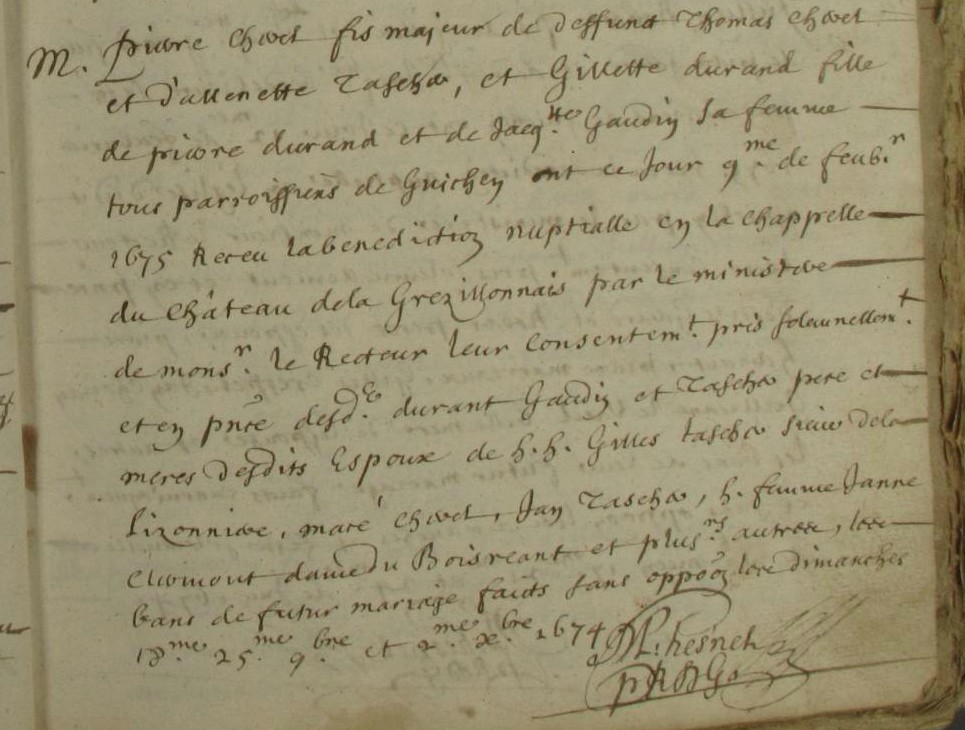 M. Pierre Chevet fis majeur de deffunct Thomas Chevet
et d'allenette Tascher, et Gillette durand fille
de pierre durand et de Jacq.tte Gaudin sa femme
tous parroissiens de Guichen ont ce Jour 9.me de feub.r
1675 Receu la benediction nuptialle en la chappelle
du Château dela Grezillonnais par le ministere
de mons.r le Recteur leur consentem.t pris solennellem.t
et en pnce desd. durant Gaudin et Tascher pere et
meres desdits Espoux de h.h. Gilles tascher sieur dela
Lizonniere, mare Chevet, Jan Tascher, h. femme Janne
Clermont dame du Boisreant et plus.rs autres, les
bans de futur mariage faicts sans oppoon les dimanches
18.me 25.me 9.bre et 2.me x.bre 1674
M. Chesnel